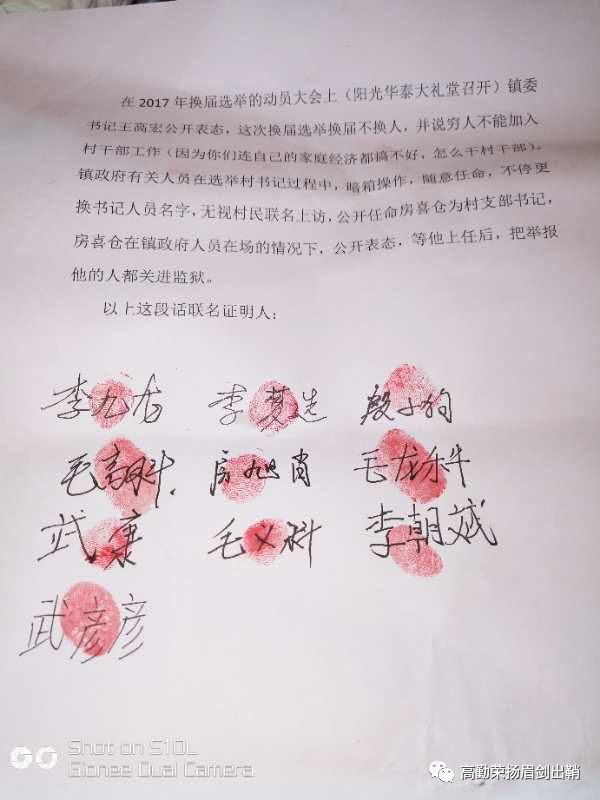 在 2017 年换届选举的动员大会上（阳光华泰大礼堂召开）镇委
书记王高宏公开表态，这次换届选举换届不换人，并说穷人不能加入
村干部工作（因为你们连自己的家庭经济都搞不好，怎么干村干部）。
镇政府有关人员在选举村书记过程中，暗箱操作，随意任命，不停更
换书记人员名字，无视村民联名上访，公开任命房喜仓为村支部书记，
房喜仓在镇政府人员在场的情况下，公开表态，等他上任后，把举报
他的人都关进监狱。
以上这段话联名证明人：
李九 李梦先 殷小狗
毛高科 房旭肖 毛龙科
武康 毛义科 李朝斌
武彦彦
Shot on S10L
Gionee Dual Camera
高勤荣扬眉剑出鞘